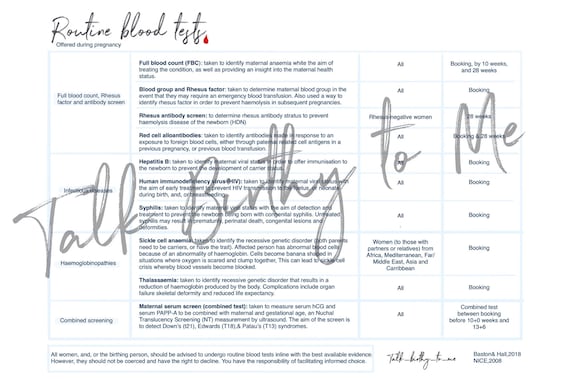 Routine blood tests
Offered during pregnancy
Full blood count, Rhesus
factor and antibody screen
Full blood count (FBC): taken to identify maternal anaemia while the aim of
treating the condition, as well as providing an insight into the maternal health
status.
All
Booking, by 10 weeks,
and 28 weeks
Blood group and Rhesus factor: taken to determine maternal blood group in the
event that they may require an emergency blood transfusion. Also used a way to
identify rhesus factor in order to prevent haemolysis in subsequent pregnancies.
All
Booking
Rhesus antibody screen: to determine rhesus antibody status to prevent
haemolysis disease of the newborn (HDN)
Rhesus-negative women
28 weeks
Red cell alloantibodies: taken to identify antibodies made in response to an
exposure to foreign blood cells, either through paternal related cell antigens in a
previous pregnancy, or previous blood transfusion.
All
Booking & 28 weeks
Infectious diseases
Hepatitis B: taken to identify maternal viral status in order to offer immunisation to
the newborn to prevent the development of carrier status.
All
Booking
Human immunodeficiency virus(HIV): taken to identify maternal viral status with
the aim of early treatment to prevent HIV transmission to the foetus, or neonate
during birth, and, or breastfeeding.
All
Booking
Syphilis: taken to identify maternal viral status with the aim of detection and
treatment to prevent the newborn being born with congenital syphilis. Untreated
syphilis may result in prematurity, perinatal death, congenital lesions and
deformities.
All
Booking
Haemoglobinopathies
Sickle cell anaemia: taken to identify the recessive genetic disorder (both parents
need to be carriers, or have the trait). Affected person has abnormal blood cells
because of an abnormality of haemoglobin. Cells become banana shaped in
situations where oxygen is scared and clump together, This can lead to sickle cell
crisis whereby blood vessels become blocked.
Women (to those with
partners or relatives) from
Africa, Mediterranean, Far/
Middle East, Asia and
Carribbean
Booking
Thalassaemia: taken to identify recessive genetic disorder that results in a
reduction of haemoglobin produced by the body. Complications include organ
failure skeletal deformity and reduced life expectancy.
All
Booking
Combined screening
Maternal serum screen (combined test): taken to measure serum hCG and
serum PAPP-A to be combined with maternal and gestational age, an Nuchal
Translucency Screening (NT) measurement by ultrasound. The aim of the screen is
to detect Down's (t21), Edwards (T18),& Patau's (T13) syndromes.
All
Combined test
between booking
before 10+0 weeks and
13+6
All women, and, or the birthing person, should be advised to undergo routine blood tests inline with the best available evidence.
However, they should not be coerced and have the right to decline. You have the responsibility of facilitating informed choice.
Talk_birthy_to_me
Baston& Hall,2018
NICE,2008
Talk Birthy to Me